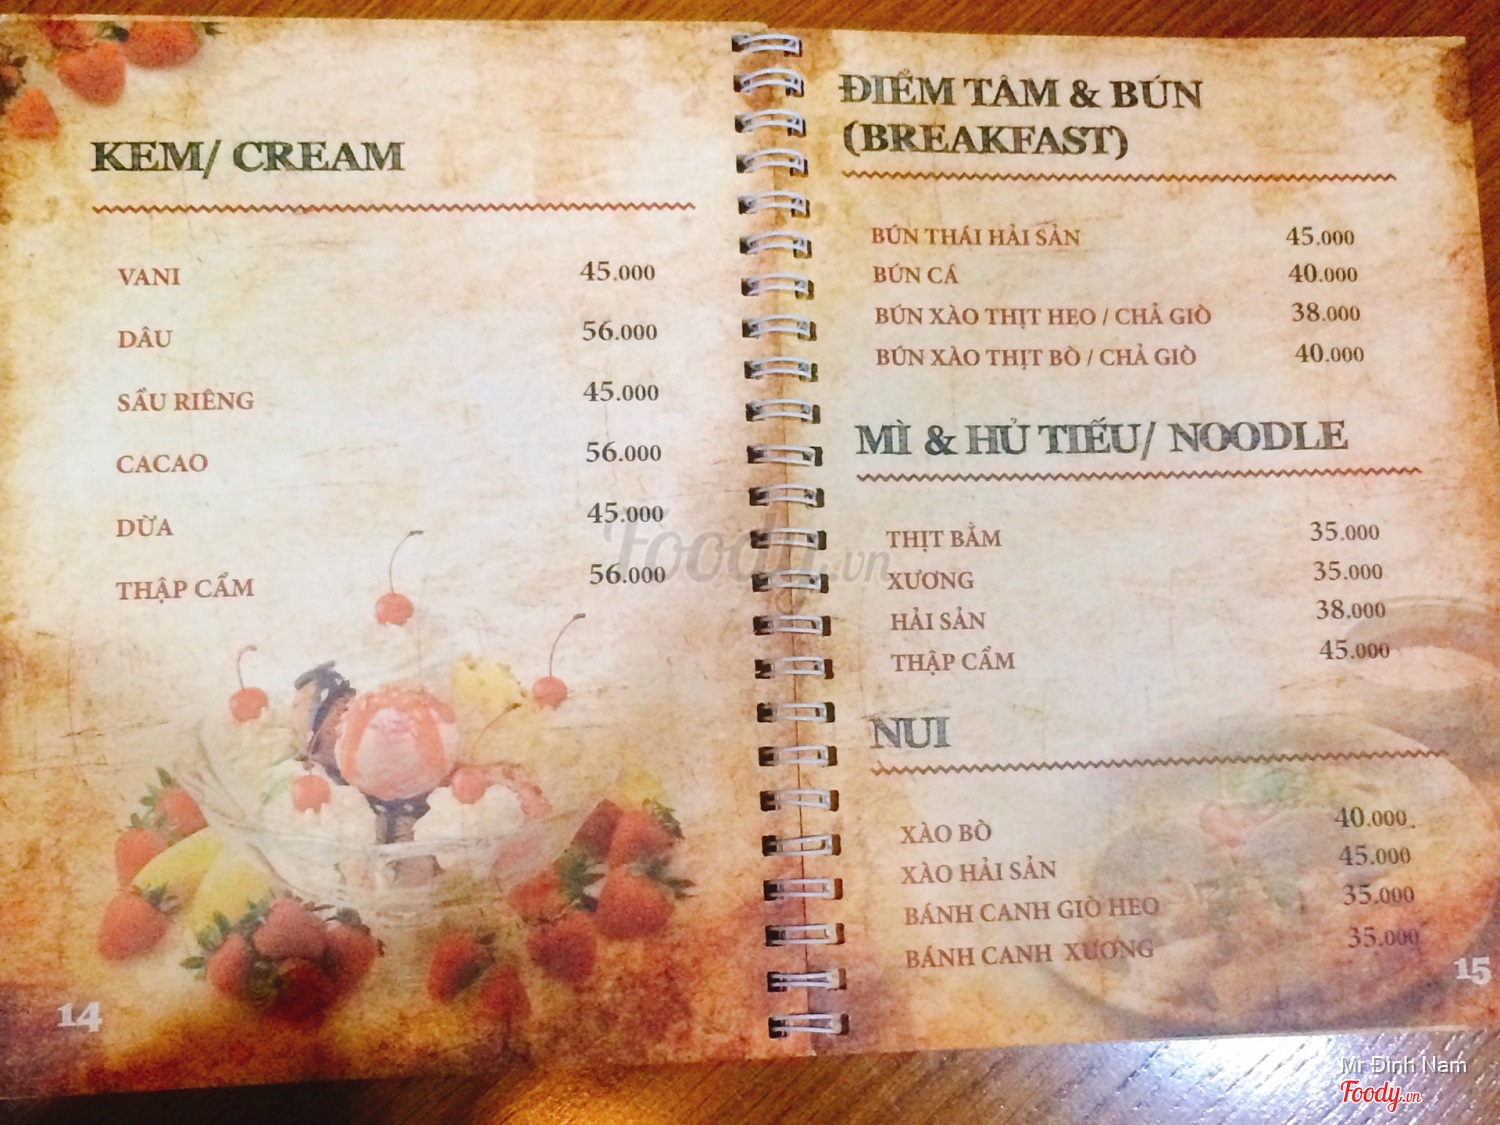 KEM/ CREAM
VANI 45.000
DÂU 56.000
SẦU RIÊNG 45.000
CACAO 56.000
DỪA 45.000
THẬP CẨM 56.000
14
ĐIỂM TÂM & BÚN
(BREAKFAST)
BÚN THÁI HẢI SẢN 45.000
BÚN CÁ 40.000
BÚN XÀO THỊT HEO / CHẢ GIÒ 38.000
BÚN XÀO THỊT BÒ / CHẢ GIÒ 40.000
MÌ & HỦ TIẾU/ NOODLE
THỊT BẰM 35.000
XƯƠNG 35.000
HẢI SẢN 38.000
THẬP CẨM 45.000
NUI
XÀO BÒ 40.000
XÀO HẢI SẢN 45.000
BÁNH CANH GIÒ HEO 35.000
BÁNH CANH XƯƠNG 35.000
15
Foody.vn
Mr Đình Nam
Foody.vn